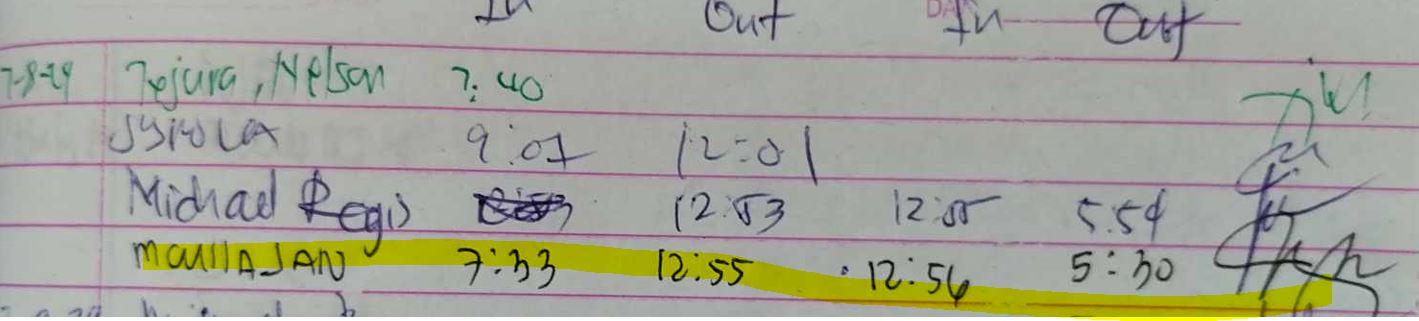 In Out In Out
7-8-24 Tejura, Nelson 7:40
9:07 12:01
Michael Regis 12:53 12:55 5:54
7:33 12:55 12:56 5:30